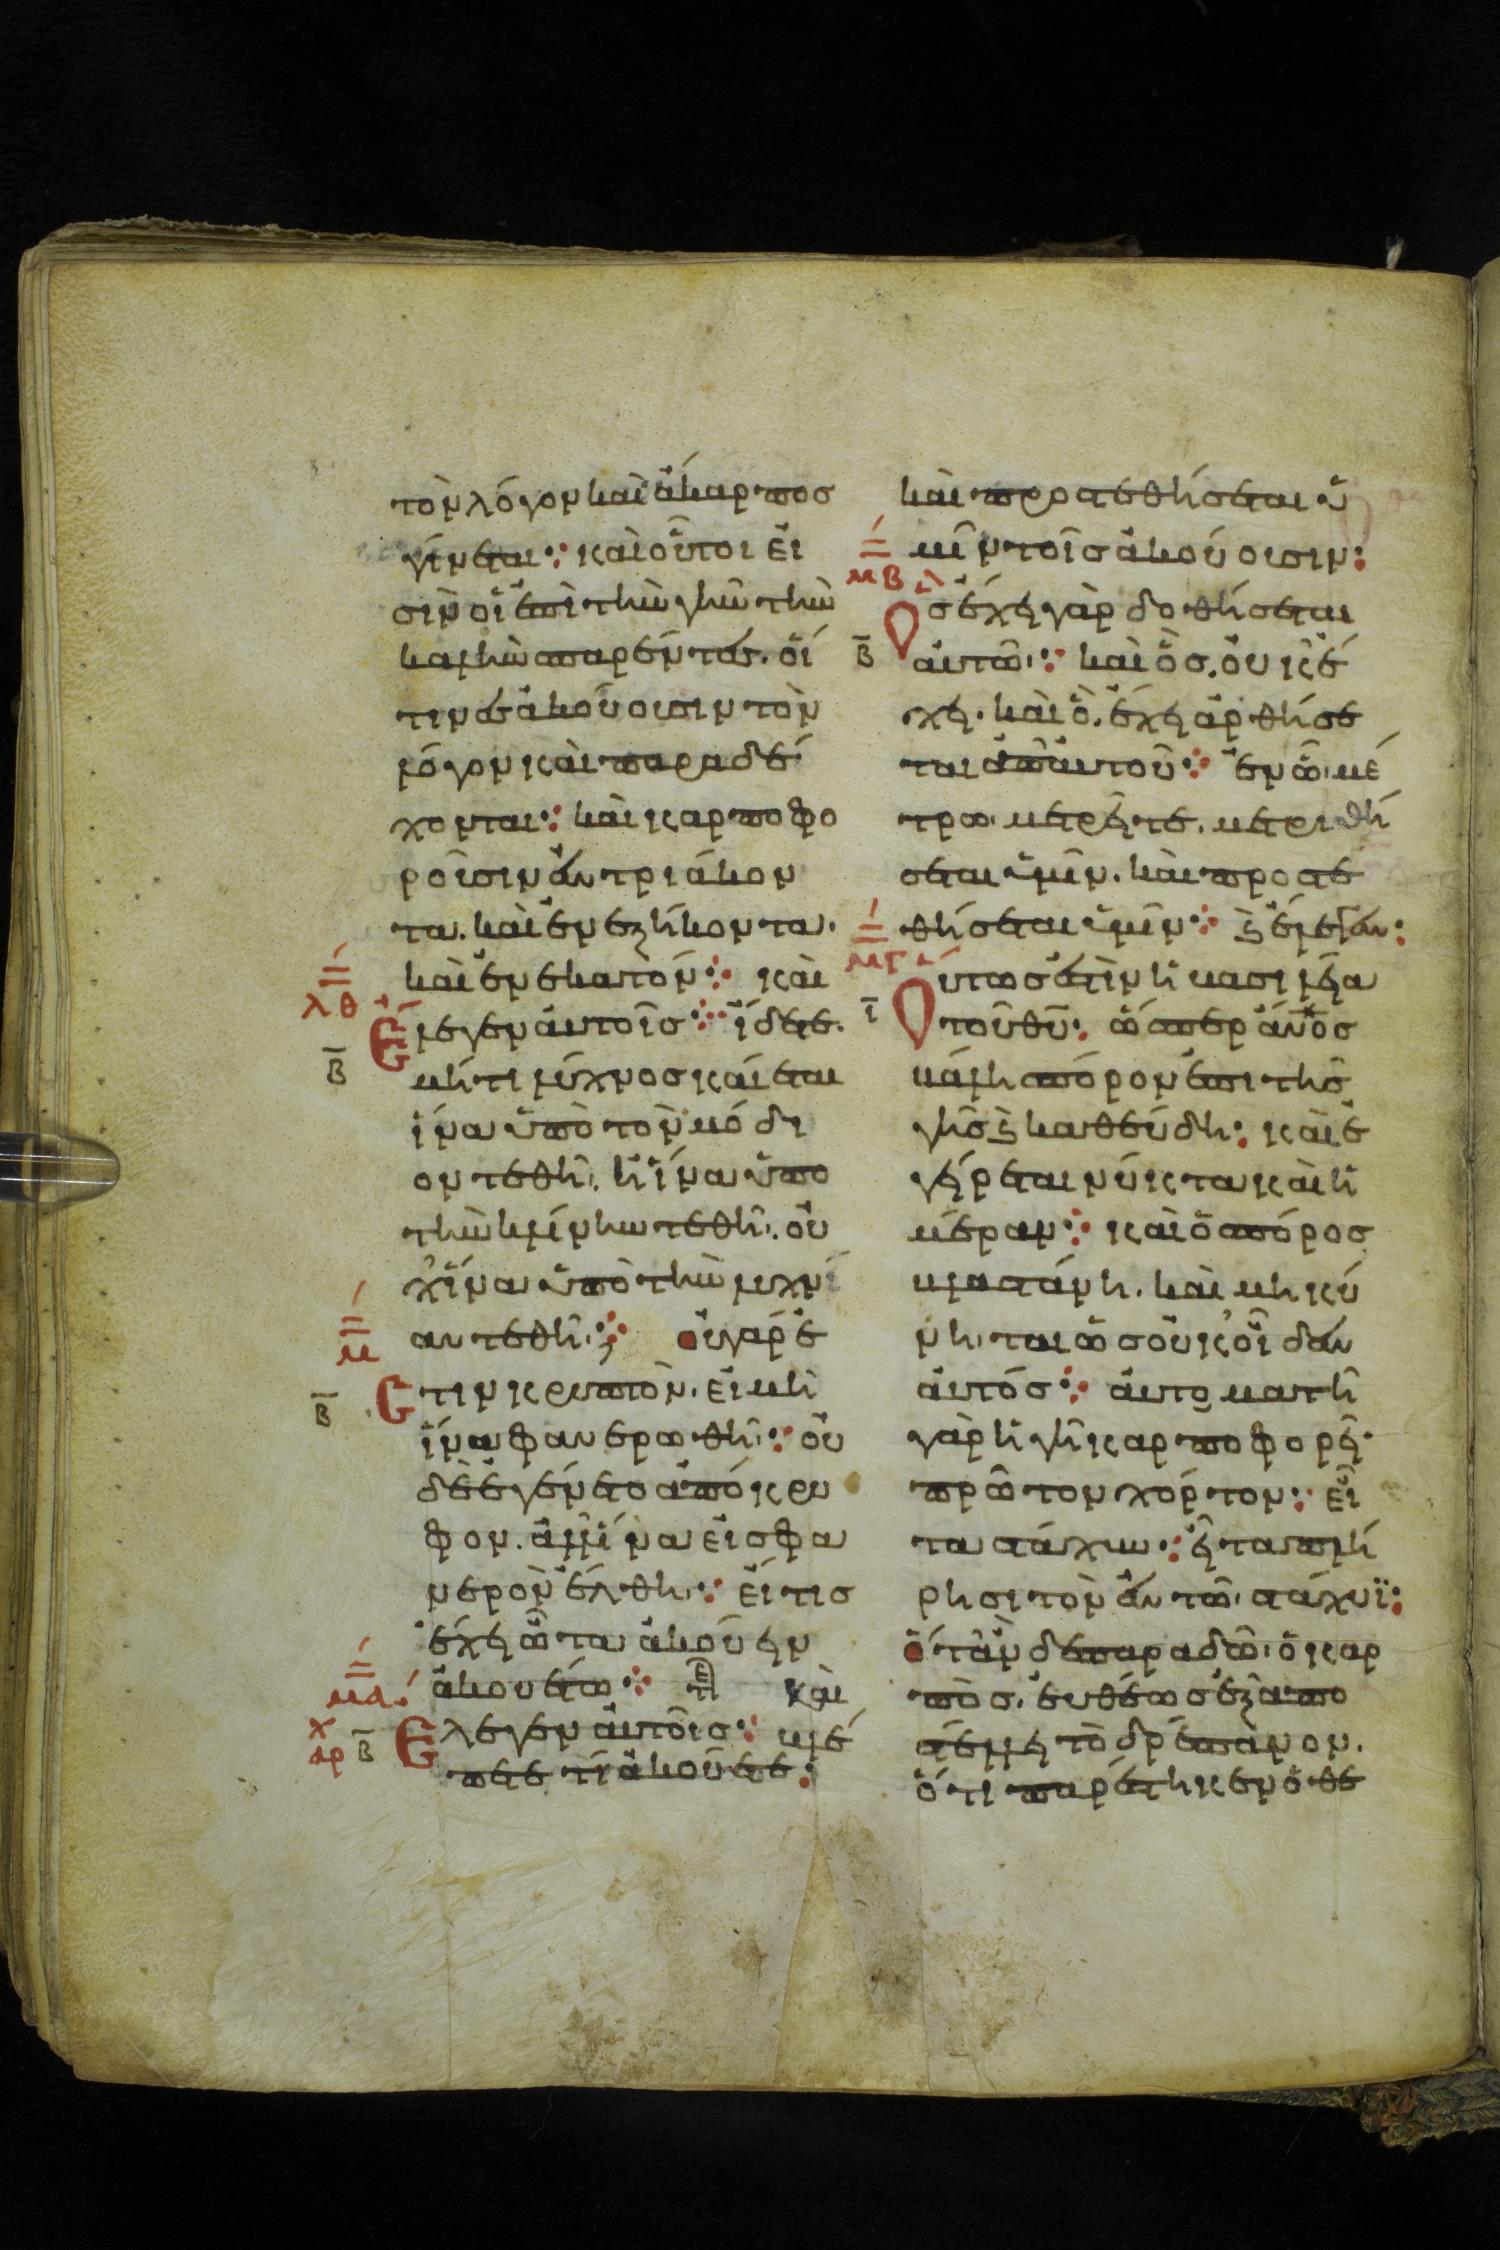 τὸν λόγον καὶ ἄκαρπος
γίνεται· καὶ οὗτοι εἰ
σὶν οἱ ἐπὶ τὴν γῆν τὴν
καλὴν σπαρέντες. οἵ
τινες ἀκούουσιν τὸν
λόγον καὶ παραδέ
χονται· καὶ καρποφο
ροῦσιν ἐν τριάκον
τα. καὶ ἐν ἑξήκοντα.
καὶ ἐν ἑκατόν· καὶ
λθ
Ἔλεγεν αὐτοῖς· ἴδετε.
β
μήτι λύχνος καίεται
ἵνα ὑπὸ τὸν μόδι
ον τεθῆ. ἢ ἵνα ὑπο
τὴν κλίνην τεθῆ. οὐ
χ ἵνα ὑπὸ τὴν λυχνί
αν τεθῆ; οὐ γάρ ἐ
μ
β
Ἐ τιν κρυπτὸν. εἰ μὴ
ἵνα φανερωθῆ· οὐ
δὲ ἐγένετο ἀπόκρυ
φον. ἀλλ' ἵνα εἰς φα
νερὸν ἔλθη· εἴ τις
ἔχει ὦτα ἀκούειν
ἀκουέτω· τε καὶ
μα
χ
αρ β
Ἔλεγεν αὐτοῖς· βλέ
πετε τί ἀκούετε·
καὶ προστεθήσεται ὑ
μῖν τοῖς ἀκούουσιν·
μβ
Ὃς ἔχει γὰρ δοθήσεται
β
αὐτῶ· καὶ ὃς. οὐκ ἔ
χει. καὶ ὃ. ἔχει ἀρθήσε
ται ἀπ' αὐτοῦ· ἐν ὧ μέ
τρω μετρεῖτε. μετρηθή
σεται ὑμῖν. καὶ προστε
θήσεται ὑμῖν· ϗ ἔλεγεν·
μγ
Οὕτως ἐστὶν ἡ βασιλεία
ι
τοῦ θυ· ὥσπερ ἄνος
βάλη σπόρον ἐπι τῆς
γῆς ϗ καθεύδη· καὶ ἐ
γείρεται νύκτα καὶ ἡ
μέραν· καὶ ὁ σπόρος
βλαστάνη. καὶ μηκύ
νηται ὡς οὐκ οἶδεν
αὐτός· αὐτοματη
γὰρ ἡ γῆ καρποφορεῖ·
πρῶτον χόρτον· εἶ
τα στάχυν· εἶτα πλή
ρη σιτον ἐν τῶ στάχυϊ·
ὅταν δὲ παραδῶ ὁ καρ
πὸς. εὐθέως ἐξαπο
στέλλει τὸ δρέπανον.
ὅτι παρέστηκεν ὁ θε